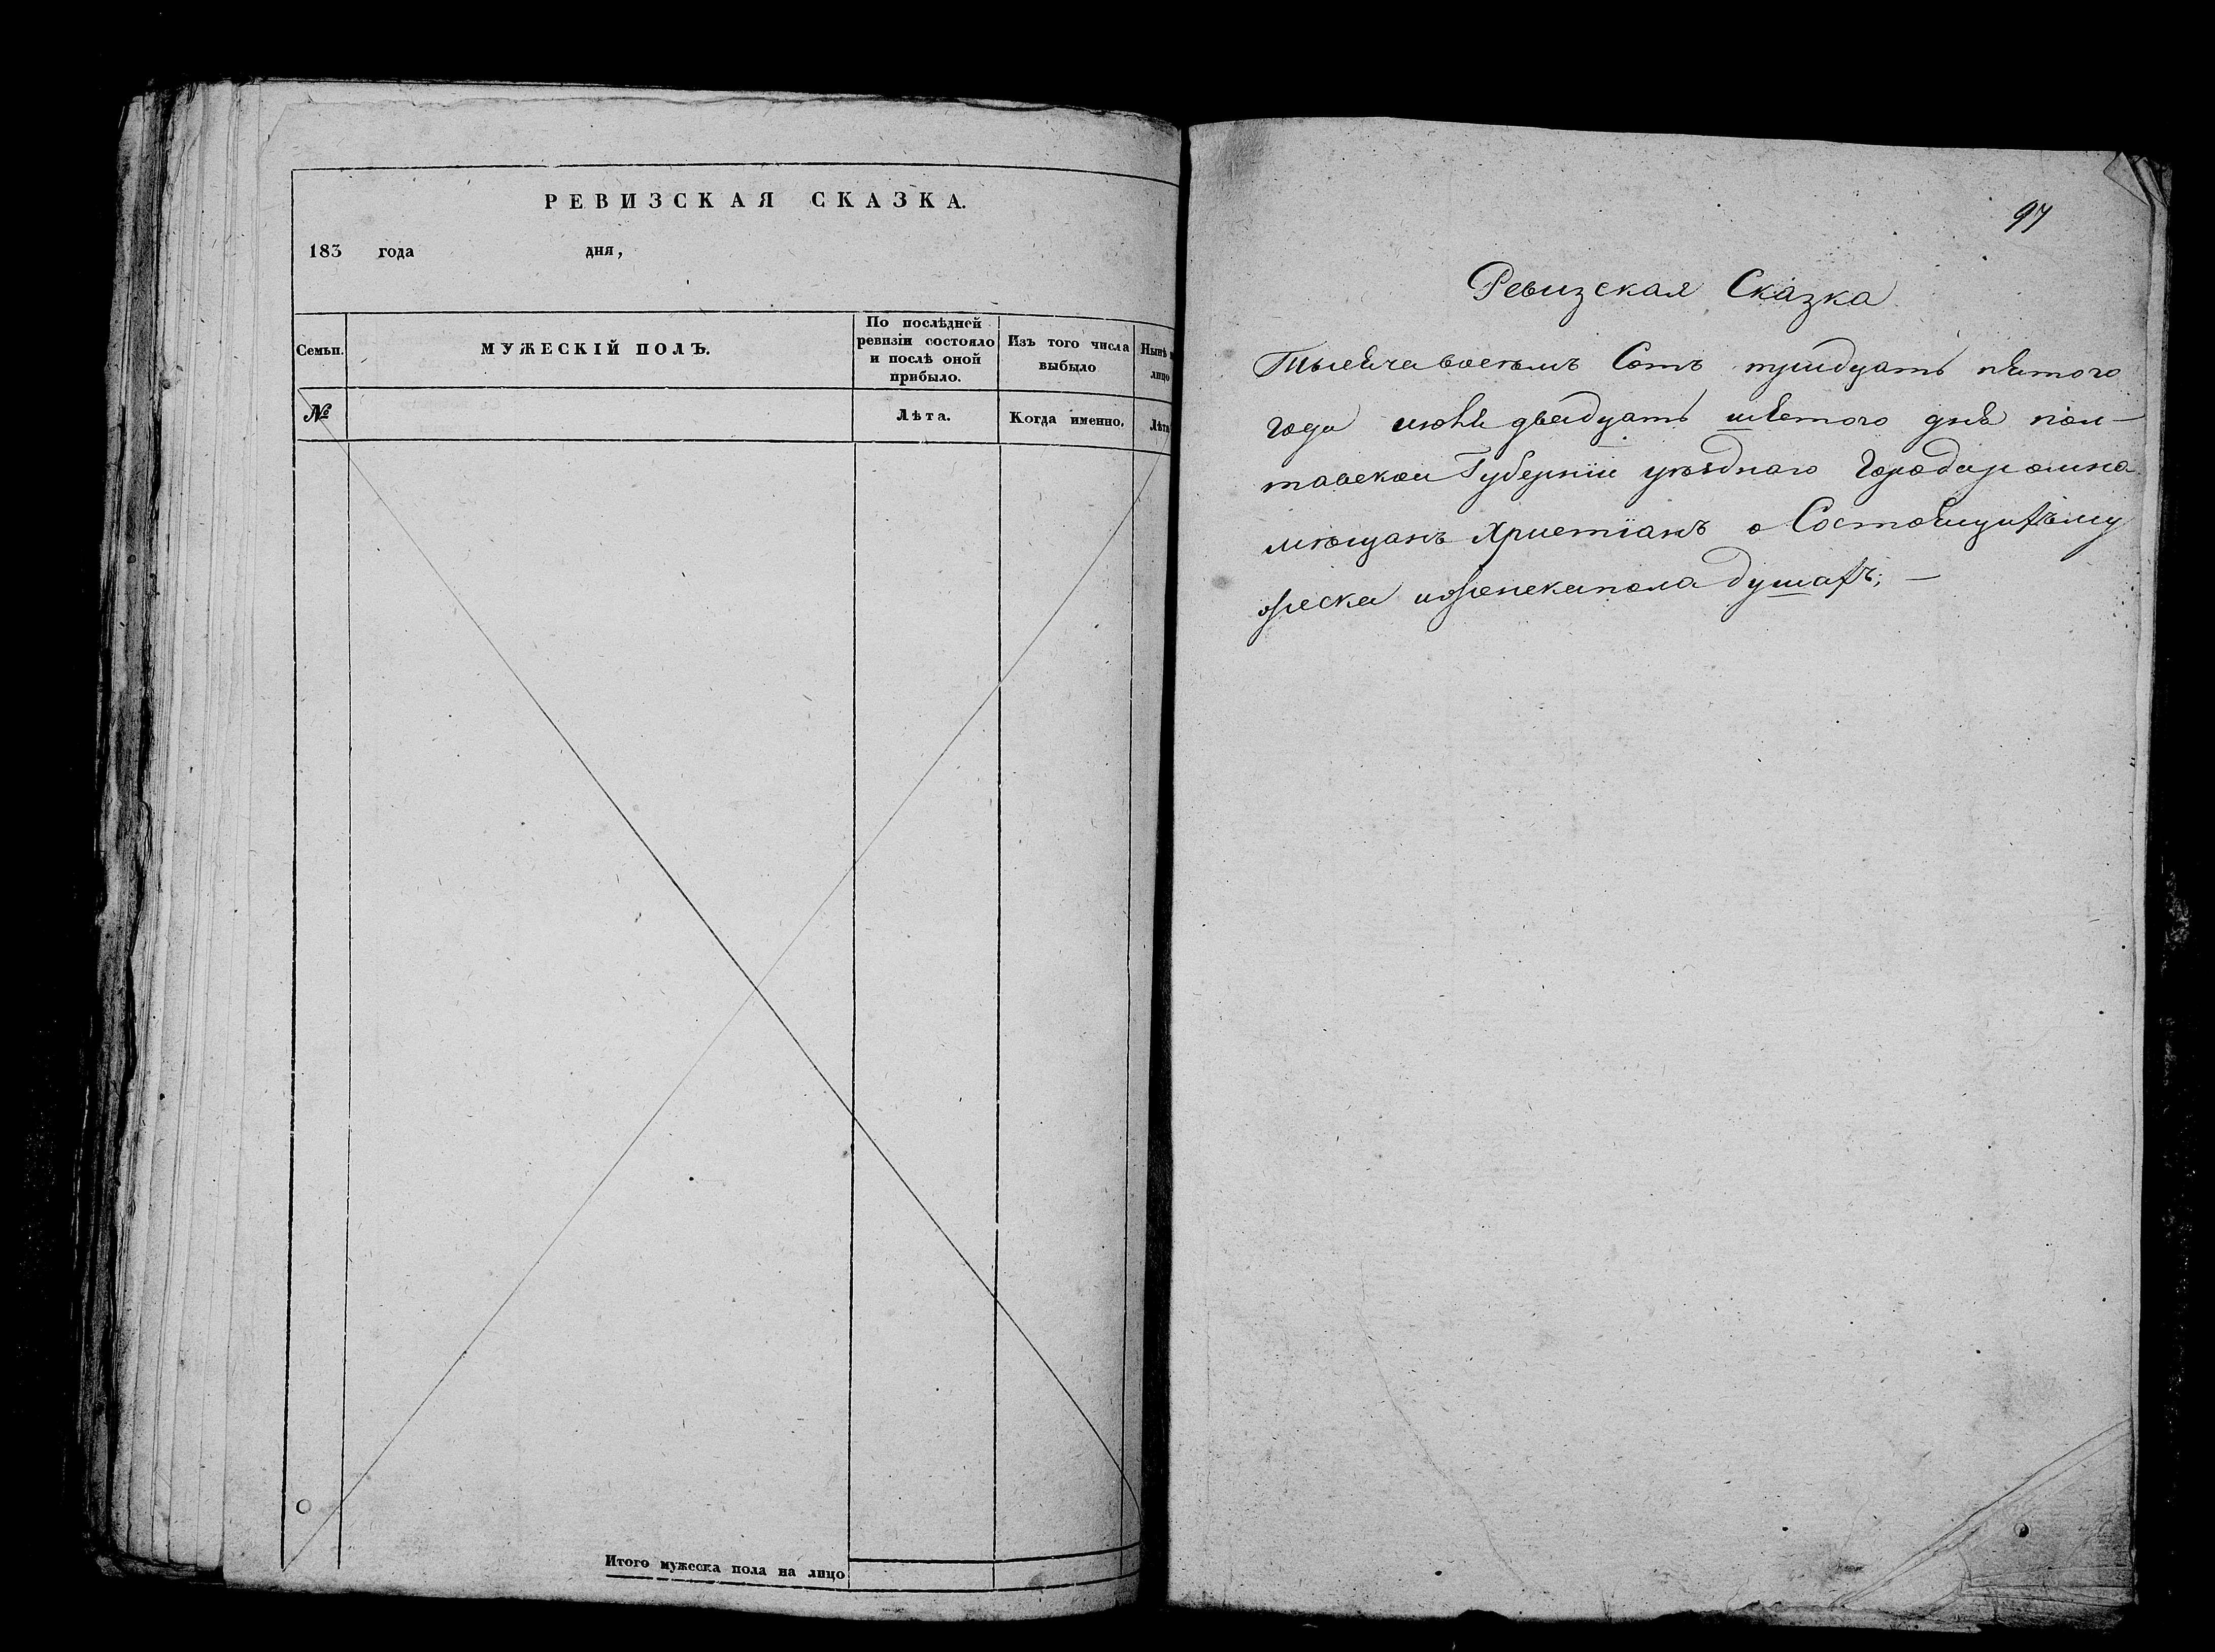 РЕВИЗСКАЯ СКАЗКА.
183 года дня,
Семьи.
МУЖЕСКІЙ ПОЛЪ.
По послѣдней
ревизіи состояло
и послѣ оной
прибыло.
Изъ того числа
выбыло
Нынѣ
лицо
№
Лѣта.
Когда именно.
Лѣта
Итого мужеска пола на лицо
97
Ревизская Сказка
Тысяча восемь Сотъ тридцать пятого
Года июня двадцать шѣстого дня пол-
тавской Губерніи уѣзднаго Города ромна
мѣщанъ Христіанъ о Состоящихъ му
жеска и женска пола душахъ; —